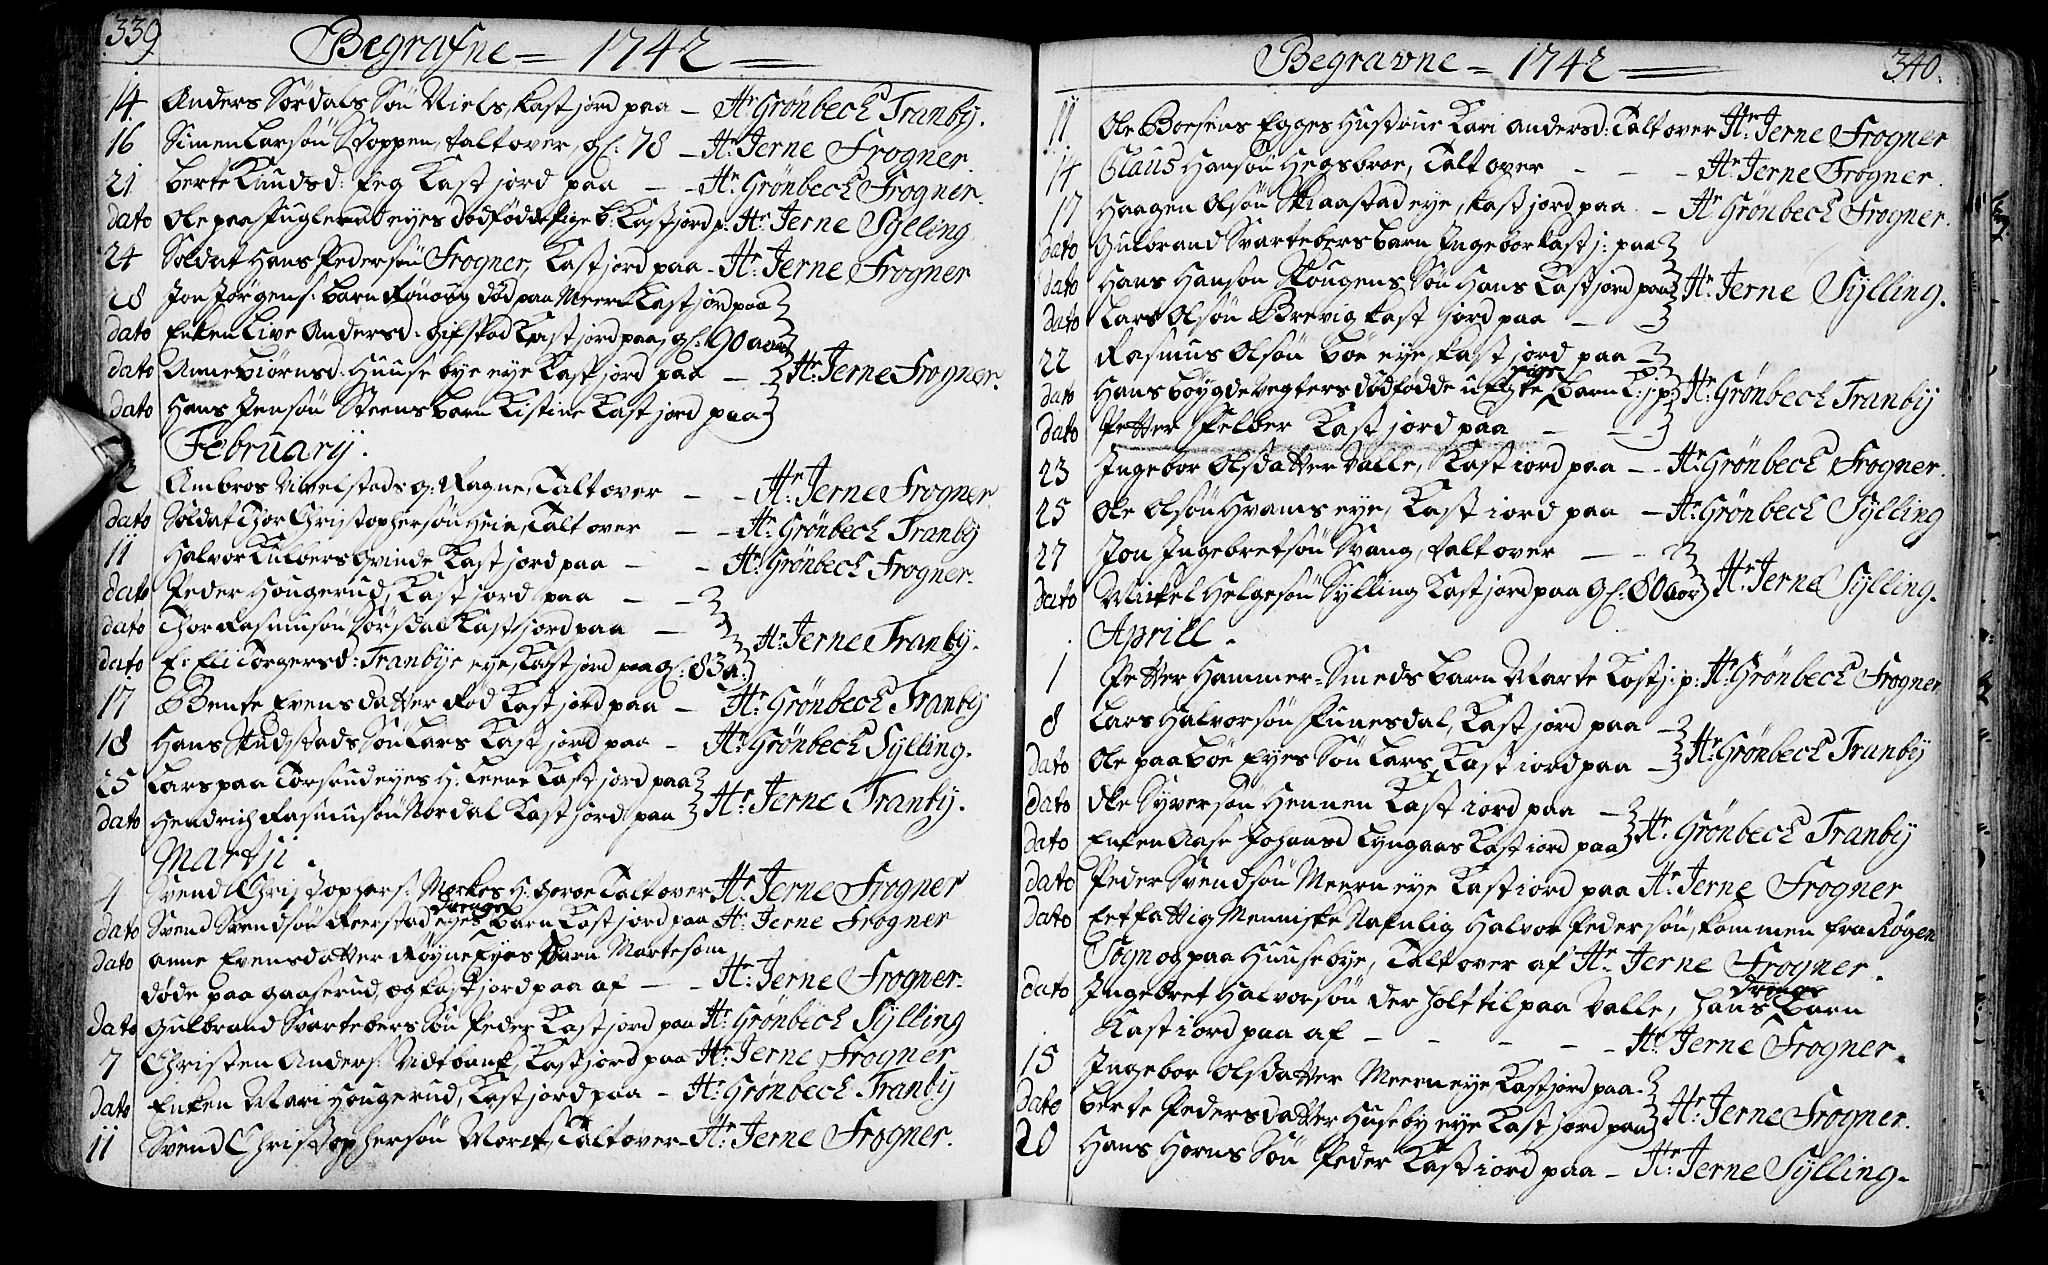 339
Begrafne = 1742
14. Anders Sördals Sön Niels, Kast jord paa - Hr Grönbech Tranby.
16 Simen Larsön Stoppen, talt over, gl. 78 - Hr Jerne Frogner.
21 Berte Knudsd: Eeg Kast jord paa - - Hr Grönbech Frogner.
dato Ole paa Fuglerud eyes dödfödde Pige b: Kast jord p: Hr Jerne Sylling
24 Soldat Hans Pedersön Frogner, Kast jord paa - Hr Jerne Frogner
28 Jon Jörgens: barn död paa Meern Kast jord paa
dato Enken Live Andersd: Gifstad Kast jord paa, gl: 90 aar
dato Anne Biörnsd: Huusebye eye Kast jord paa - Hr: Jerne Frogner.
dato Hans Jensön Steens barn Kistine Kast jord paa
February.
2 Ambros Nivelstads g: Ragne, Talt over - - Hr: Jerne Frogner.
dato Soldat Thor Christophersön Hein, Talt over - - Hr Grönbech Tranby
11 Halvor Kulbers Qvinde Kast jord paa - - Hr Grönbech Frogner.
dato Peder Hougerud, Kast jord paa - -
dato Thor Rasmusön Sörsdal Kast jord paa - Hr: Jerne Tranby.
dato E: Eli Torgersd: Tranbye eye, Kast jord paa gl: 83 a:
17 Bente Evensdatter Rod Kast jord paa - Hr: Grönbech Tranby
18 Hans Stadsstads Sön Lars Kast jord paa - Hr Grönbech Sylling.
25 Lars paa Torsrud eyes H: Leene Kast jord paa
dato Hendrich Rasmusön Nordal Kast jord paa Hr Jerne Tranby.
Martji.
4 Svend Christophers: Morkes H: Goroe Talt over Hr Jerne Frogner
dato Svend Svendsön Veerstad eyes Drenge Barn Kast jord paa Hr: Jerne Frogner
dato Anne Evensdatter Röyne Eyes Barn Marte som
döde paa Gaaserud, og Kast jord paa af - - Hr: Jerne Frogner.
dato Gulbrand Svartebers Sön Peder Kast jord paa Hr: Grönbech Sylling
7 Christen Anders: Vidtbank, Kast jord paa Hr: Jerne Frogner
dato Enken Mari Hougerud, Kast jord paa - Hr: Grönbech Tranby
11 Svend Christophersön Mork, Talt over - Hr Jerne Frogner.
Begravne = 1742
340.
11. Ole Boesens Egges Hustrue Kari Andersd: Talt over Hr Jerne Frogner
14 Claus Hansön Hegsbroe, Talt over - - - Hr Jerne Frogner.
17 Haagen Olsön Skiaastad eye, Kast jord paa - Hr Grönbech Frogner.
dato Gulbrand Svartebers barn Ingebor Kast j: paa
dato Hans Hansön Hougens Sön Hans Kast jord paa Hr Jerne Sylling.
dato Lars Olsön Brevig Kast jord paa - -
22 Rasmus Olsön Böe eye, Kast jord paa -
dato Hans Böygdevegters dödfödde uægte Pige Barn K: j: p: Hr: Grönbech Tranby
dato Petter Felber Kast jord paa - -
23 Ingebor Olsdatter Valle, Kast iord paa - - Hr: Grönbech Frogner.
25 Ole Olsön Hvams eye, Kast iord paa - Hr: Grönbech Sylling
27 Jon Ingebretsön Svang, talt over - - -
dato Mickel Helgesön Sylling Kast jord paa gl: 80 aar Hr Jerne Sylling.
Aprill.
1 Petter Hammer-Smeds barn Marte Kast j: p: Hr: Grönbech Frogner
8 Lars Halvorsön Funesdal, Kast jord paa -
dato Ole paa Böe Eyes Sön Lars, Kast iord paa - Hr: Grönbech Tranby
dato Ole Syversön Hennen Kast iord paa -
dato Enken Aase Johansd Lyngaas Kast iord paa Hr. Grönbech Tranby
dato Peder Svendsön Meern eye Kast iord paa Hr Jerne Frogner
dato Eet fattig Menniske Nafnlig Halvor Pedersön, kommen fra Rögen
Sogn og paa Huusebye, Talt over af Hr Jerne Frogner.
dato Ingebret Halvorsön der holt til paa Valle, hans Drenge Barn
Kast iord paa af - - - - - Hr Jerne Frogner.
15 Ingebor Olsdatter Meern eye, Kast jord paa -
dato Berte Pedersdatter Huseby eye Kast jord paa Hr Jerne Frogner.
20 Hans Horns Sön Peder Kast iord paa - Hr: Jerne Sylling.